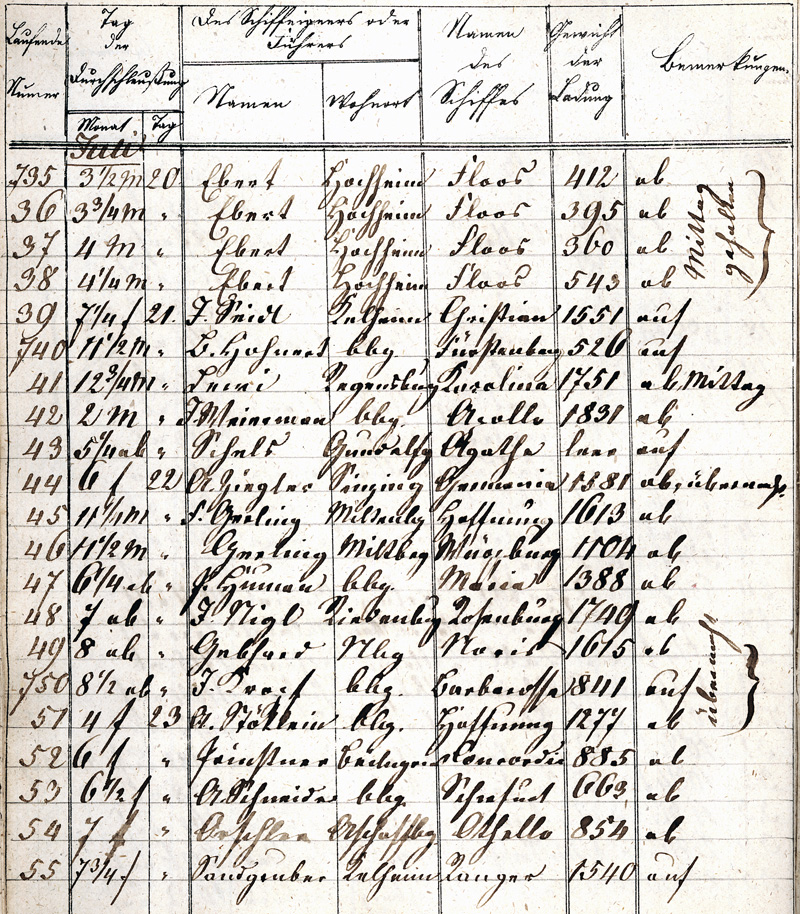 Laufende Numer | Tag der Durchschleußung | Des Schiffeigners oder Führers | Namen des Schiffes | Gewicht der Ladung | Bemerkungen.
Monat | Tag | Namen | Wohnort
Juli
735 3 1/2 M 20 Ebert Hochheim Floos 412 ab
36 3 3/4 M " Ebert Hochheim Floos 395 ab
37 4 M " Ebert Hochheim Floos 360 ab
38 4 1/4 M " Ebert Hochheim Floos 543 ab
Mittag gehalten
39 7 1/4 f 21. J. Seidl Kelheim Christian 1551 auf
740 11 1/2 M " B. Hohnert bbg Fürstenberg 526 auf
41 12 3/4 M " Regensburg Karolina 1751 ab, Mittag
42 2 M " J Weierman bbg. Apollo 1831 ab
43 5 1/4 ab " Schels Gundelfg Agathe leer auf
44 6 f 22 A. Ziegler Sinzing Germania 1581 ab, übernacht.
45 11 1/4 M " F. Gerling Miltenbg Hoffnung 1613 ab
46 11 1/2 M " Gerling Miltbg Würzburg 1104 ab
47 6 1/4 ab " Human bbg. Maria 1388 ab
48 7 ab " J. Nigl Riedenbg Rosenburg 1749 ab
49 8 ab " Gebhard Nbg Noris 1675 ab
750 8 1/2 ab " J. Kropf bbg. Barbarossa 1841 auf
51 4 f 23 A. Stöklein bbg. Hoffnung 1277 ab
übernacht
52 6 f " Concordia 885 ab
53 6 1/2 f " A Schneider bbg 663 ab
54 7 f " Oeschler Aschaffbg Othello 854 ab
55 7 3/4 f " Sandgruber Kelheim Ranger 1540 auf